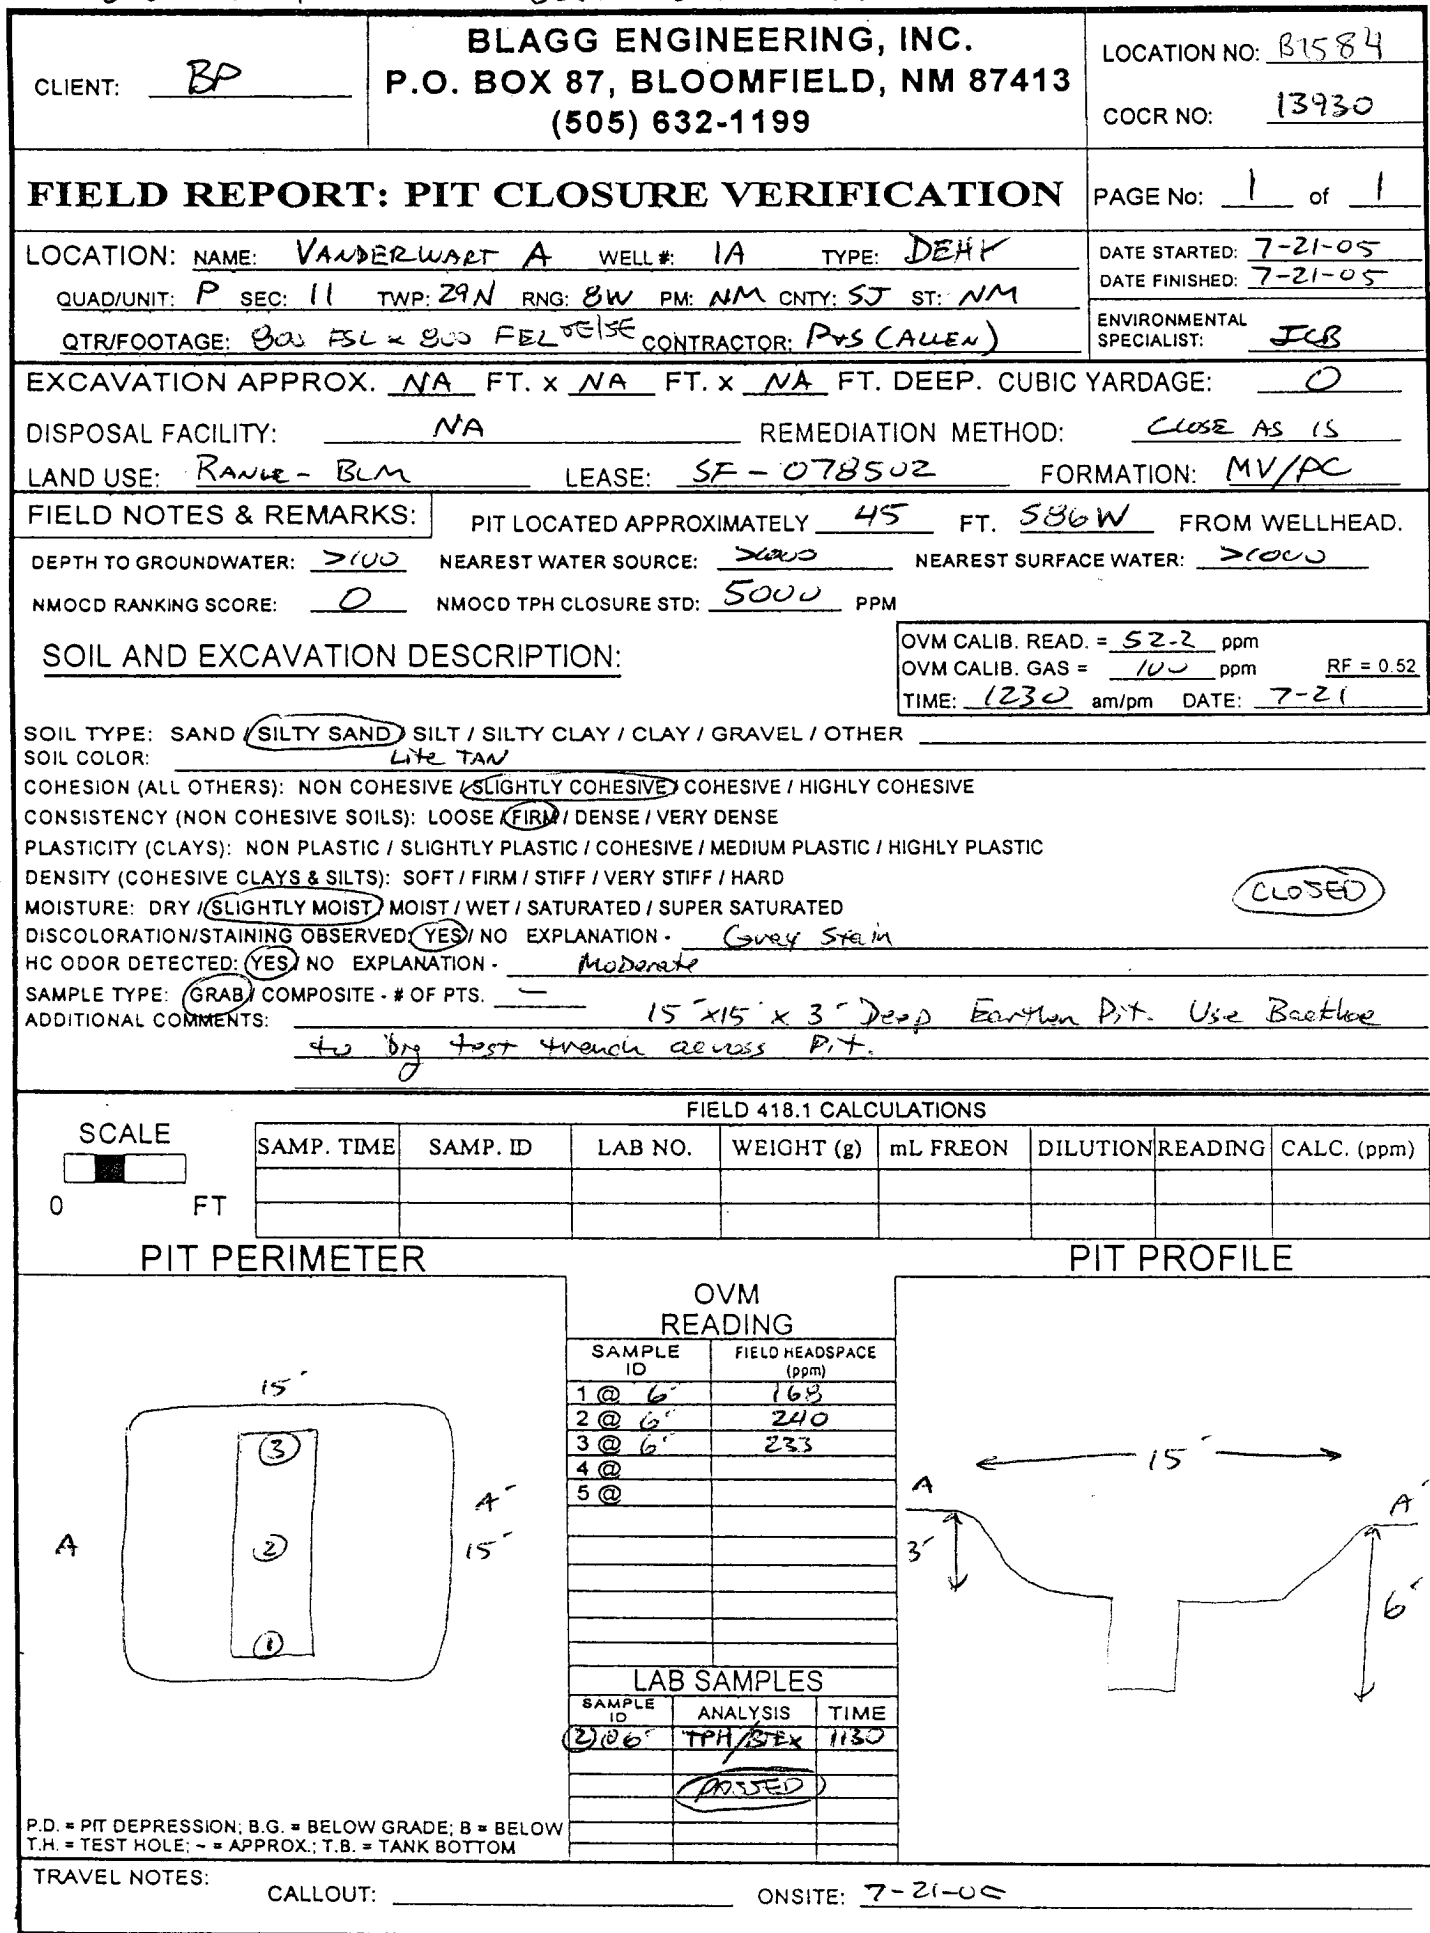 BLAGG ENGINEERING, INC.
P.O. BOX 87, BLOOMFIELD, NM 87413
(505) 632-1199
CLIENT: BP
LOCATION NO: B1584
COCR NO: 13930
FIELD REPORT: PIT CLOSURE VERIFICATION
PAGE No: 1 of 1
LOCATION: NAME: VANDERWART A WELL #: 1A TYPE: DEHY
QUAD/UNIT: P SEC: 11 TWP: 29N RNG: 8W PM: NM CNTY: SJ ST: NM
QTR/FOOTAGE: 800 FSL x 800 FEL SE/SE CONTRACTOR: P+S (ALLEN)
DATE STARTED: 7-21-05
DATE FINISHED: 7-21-05
ENVIRONMENTAL
SPECIALIST: JCB
EXCAVATION APPROX. NA FT. x NA FT. x NA FT. DEEP. CUBIC YARDAGE: 0
DISPOSAL FACILITY: NA REMEDIATION METHOD: CLOSE AS IS
LAND USE: RANGE - BLM LEASE: SF-078502 FORMATION: MV/PC
FIELD NOTES & REMARKS: PIT LOCATED APPROXIMATELY 45 FT. S86W FROM WELLHEAD.
DEPTH TO GROUNDWATER: >100 NEAREST WATER SOURCE: >1000 NEAREST SURFACE WATER: >1000
NMOCD RANKING SCORE: 0 NMOCD TPH CLOSURE STD: 5000 PPM
SOIL AND EXCAVATION DESCRIPTION:
OVM CALIB. READ. = 52.2 ppm
OVM CALIB. GAS = 100 ppm RF = 0.52
TIME: 1230 am/pm DATE: 7-21
SOIL TYPE: SAND / SILTY SAND / SILT / SILTY CLAY / CLAY / GRAVEL / OTHER
SOIL COLOR: Lite TAN
COHESION (ALL OTHERS): NON COHESIVE / SLIGHTLY COHESIVE / COHESIVE / HIGHLY COHESIVE
CONSISTENCY (NON COHESIVE SOILS): LOOSE / FIRM / DENSE / VERY DENSE
PLASTICITY (CLAYS): NON PLASTIC / SLIGHTLY PLASTIC / COHESIVE / MEDIUM PLASTIC / HIGHLY PLASTIC
DENSITY (COHESIVE CLAYS & SILTS): SOFT / FIRM / STIFF / VERY STIFF / HARD
CLOSED
MOISTURE: DRY / SLIGHTLY MOIST / MOIST / WET / SATURATED / SUPER SATURATED
DISCOLORATION/STAINING OBSERVED: YES / NO EXPLANATION - Grey Stain
HC ODOR DETECTED: YES / NO EXPLANATION - Moderate
SAMPLE TYPE: GRAB / COMPOSITE - # OF PTS. —
ADDITIONAL COMMENTS: 15' x 15' x 3' Deep Earthen Pit. Use Backhoe
to Dig test trench across Pit.
FIELD 418.1 CALCULATIONS
SCALE
0 FT
SAMP. TIME SAMP. ID LAB NO. WEIGHT (g) mL FREON DILUTION READING CALC. (ppm)
PIT PERIMETER
15'
3
A'
A 2 15'
1
P.D. = PIT DEPRESSION; B.G. = BELOW GRADE; B = BELOW
T.H. = TEST HOLE; ~ = APPROX.; T.B. = TANK BOTTOM
OVM
READING
SAMPLE ID FIELD HEADSPACE (ppm)
1 @ 6' 168
2 @ 6' 240
3 @ 6' 233
4 @
5 @
LAB SAMPLES
SAMPLE ID ANALYSIS TIME
2 @ 6' TPH/BTEX 1130
PASSED
PIT PROFILE
15'
A A'
3'
6'
TRAVEL NOTES:
CALLOUT: ONSITE: 7-21-05